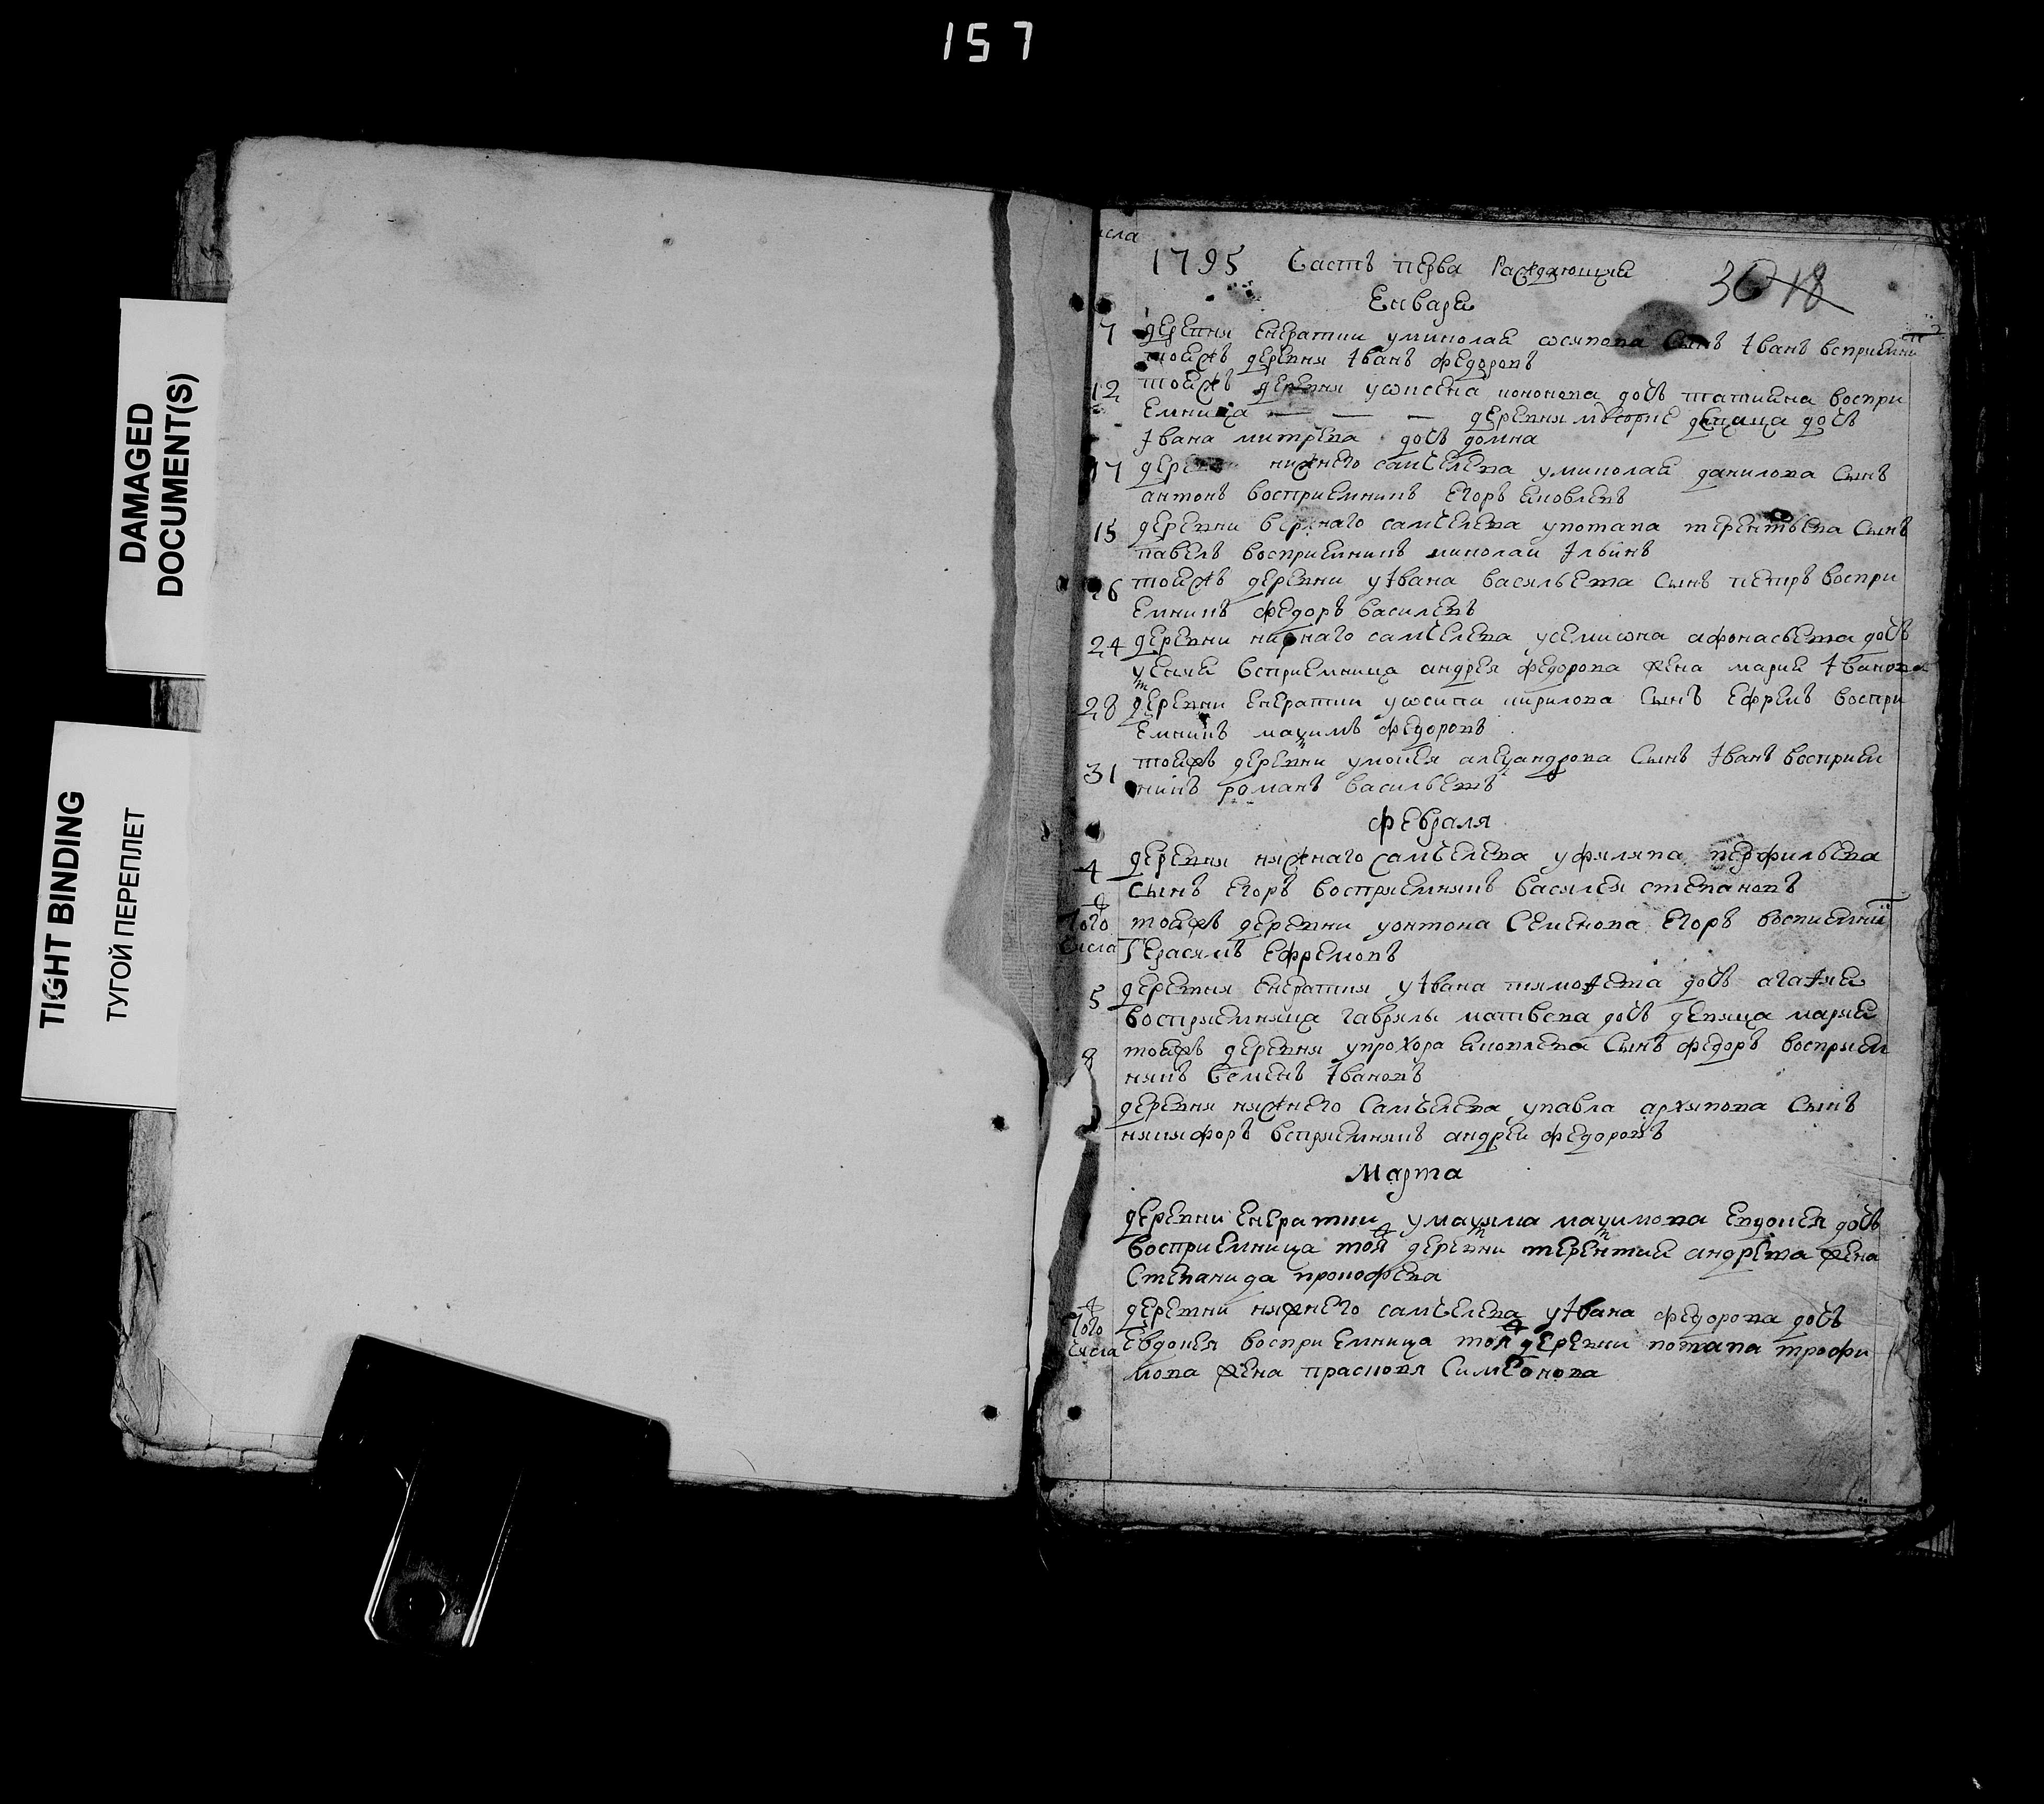 157
DAMAGED
DOCUMENT(S)
TIGHT BINDING
ТУГОЙ ПЕРЕПЛЕТ
исла
1795 Часть перва Раждающия
30 18
Енваря
7 деревня Енератки у миколая осипова Сынъ Іванъ вспрıемни
тоижъ деревня Іванъ федоровъ
12 тоижъ деревня кононова дочь татияна воспри
Емница — — — деревня девица дочь
Івана митрева дочь домна
17 нижнего самчелева у миколая данилова Сынъ
антонъ восприемникъ Егоръ яковлевъ
15 деревни верхнаго самчелева у потапа терентьева Сынъ
павелъ восприемникъ миколаи Ильинъ
26 тоижъ деревни у Івана васильева Сынъ петръ воспри
Емникъ федоръ василевъ
24 деревни нижнаго самчелева у семиона афонасьева дочь
ксения вспрıемница андрея федорова жена мария Іванова
28 деревни Енератки у осипа кирилова Сынъ Ефремъ воспри
Емникъ макимъ федоровъ
31 тоижъ деревни у моисея александрова Сынъ Іванъ восприем
никъ романъ васильевъ
февраля
4 деревня нижнаго самчелева у филипа перфильева
сынъ Егоръ восприемникъ василея степановъ
того числа тоижъ деревни у онтона Семенова Егоръ воспиемни
Герасимъ Ефремовъ
5 деревня Енератки у Івана тимоѳева дочь агаѳия
восприемница гаврилы матвева дочь девица мария
8 тоижъ деревня у прохора яковлева Сынъ федоръ восприем
никъ семенъ Івановъ
деревня нижнего Самчелева у павла архипова Сынъ
никифоръ вспрıемникъ андреи федоровъ
Марта
деревни Енератки у макима макимова Евдокея дочь
восприемница тоя деревни терентия андрева жена
Степанида прокофева
того числа деревни нижнего самчелева у Івана федорова дочь
Евдокея восприемница тоя деревни потапа трофи
мова жена прасковя Симеонова